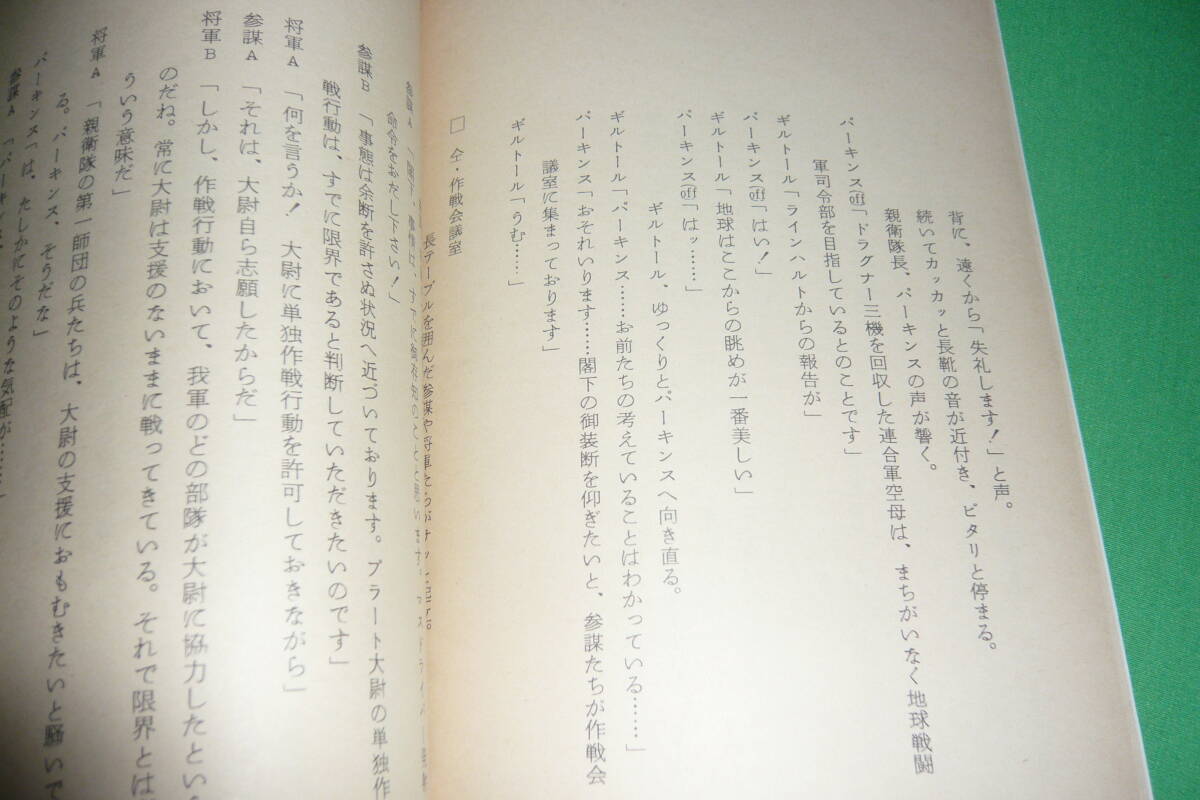 背に、遠くから「失礼します！」と声。
続いてカッカッと長靴の音が近付き、ピタリと停まる。
親衛隊長、パーキンスの声が響く。
パーキンス(off)「ドラグナー三機を回収した連合軍空母は、まちがいなく地球戦闘
軍司令部を目指しているとのことです」
ギルトール「ラインハルトからの報告が」
パーキンス(off)「はい！」
ギルトール「地球はここからの眺めが一番美しい」
パーキンス(off)「はッ……」
ギルトール、ゆっくりとパーキンスへ向き直る。
ギルトール「パーキンス……お前たちの考えていることはわかっている……」
パーキンス「おそれいります……閣下の御装断を仰ぎたいと、参謀たちが作戦会
議室に集まっております」
ギルトール「うむ……」
□ 仝・作戦会議室
長テーブルを囲んだ参謀や将軍たちが
参謀A「閣下、事情は、すで
命令をおだし下さい！」
参謀B「事態は余断を許さぬ状況へ近づいております。プラート大尉の単独作
戦行動は、すでに限界であると判断していただきたいのです」
将軍A「何を言うか！　大尉に単独作戦行動を許可しておきながら」
参謀A「それは、大尉自ら志願したからだ」
将軍B「しかし、作戦行動において、我軍のどの部隊が大尉に協力したとい
のだね。常に大尉は支援のないままに戦ってきている。それで限界とは
ういう意味だ」
将軍A「親衛隊の第一師団の兵たちは、大尉の支援におもむきたいと騒いで
る。パーキンス、そうだな」
パーキンス「は、たしかにそのような気配が……」
参謀A「パーキンス